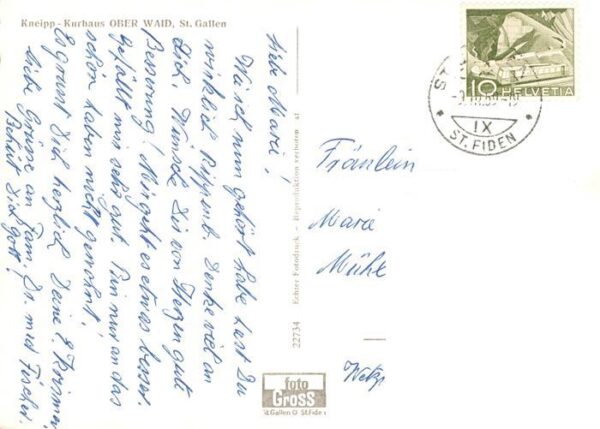 Kneipp - Kurhaus OBER WAID, St. Gallen
Liebe Marei!
Wie ich nun gehört habe hast Du
wirklich Rippenb. Denke viel an
Dich. Wünsche Dir von Herzen gute
Besserung! Mir geht es etwas besser.
Gefällt mir sehr gut. Bin nur an das
schön haben nicht gewohnt,
Es grüsst Dich herzlich Deine
liebe Grüsse an Fam. Dr. und Fischer.
Behüt Dich Gott!
22734 Echte Fotodruck - Reproduktion verboten
foto
Gross
St.Gallen O St.Fiden
10 HELVETIA
IX
ST. FIDEN
Fräulein
Marei
Mühl